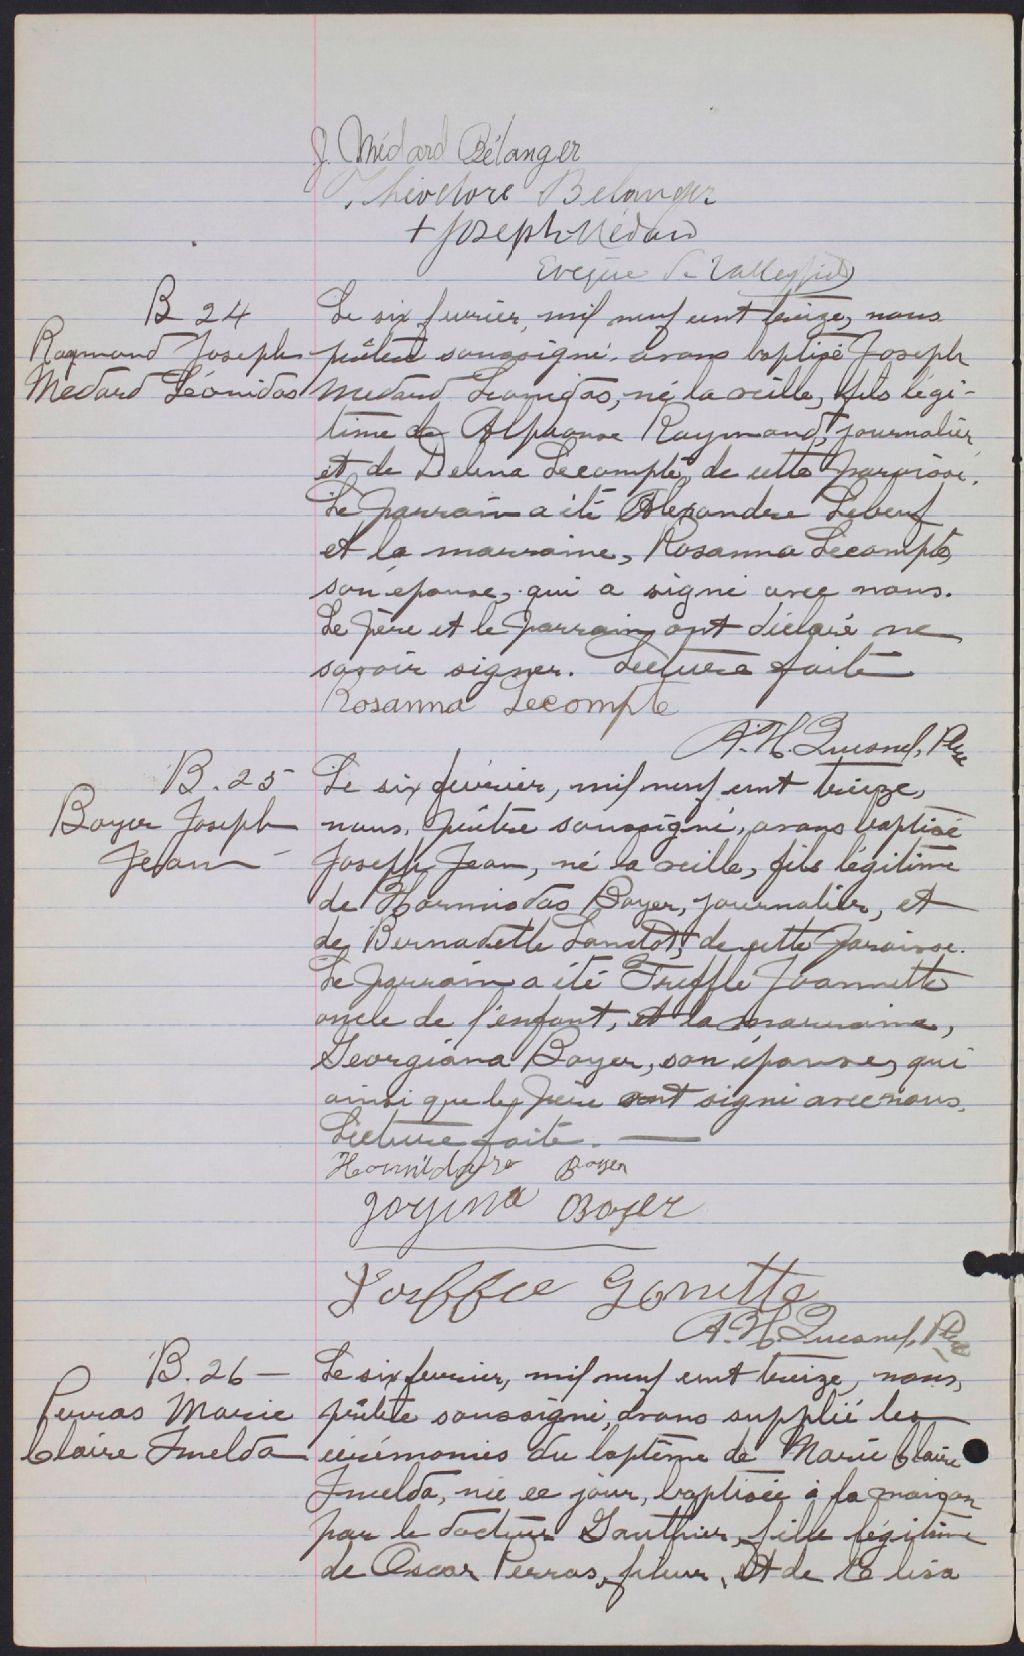 J. Médard Bélanger
Théodore Belanger
+ Joseph Médard
Evêque de Valleyfield
B 24
Raymond Joseph
Medard Léonidas
Le six fevrier, mil neuf cent treize, nous
prêtre soussigné avons baptisé Joseph
Medard Leonidas, né la veille, fils légi-
time de Alphonse Raymond, journalier
et de Delima Lecompte, de cette paroisse.
Le parrain a été Alexandre Lebeuf
et la marraine, Rosanna Lecompte,
son épouse, qui a signé avec nous.
Le père et le parrain ont déclaré ne
savoir signer. Lecture faite
Rosanna Lecompte
A. H. Quesnel, Ptre
B. 25
Boyer Joseph
Jean
Le six février, mil neuf cent treize,
nous, prêtre soussigné, avons baptisé
Joseph Jean, né la veille, fils légitime
de Hormisdas Boyer, journalier, et
de Bernadette Lanctot, de cette paroisse.
Le parrain a été Treffle Joannette
oncle de l'enfant, et la marraine,
Georgiana Boyer, son épouse, qui
ainsi que le père ont signé avec nous.
Lecture faite.
Boyer
Boyer
Gonette
A. H. Quesnel, Ptre
B. 26 —
Perras Marie
Claire Imelda
Le six fevrier, mil neuf cent treize, nous,
prêtre soussigné, avons supplié les
cérémonies du baptême de Marie Claire
Imelda, née ce jour, baptisée à la maison
par le docteur Gauthier, fille légitime
de Oscar Perras, et de Elisa